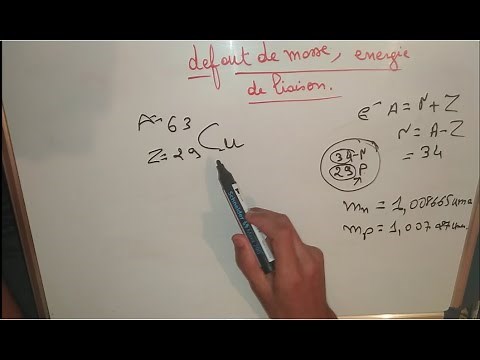 defaut de masse, energie
de liaison.
A=63
Z=29 Cu
e⁻ A = N+Z
N = A-Z
= 34
34-N
29 P
mn = 1,008665uma
mp = 1,00727uma